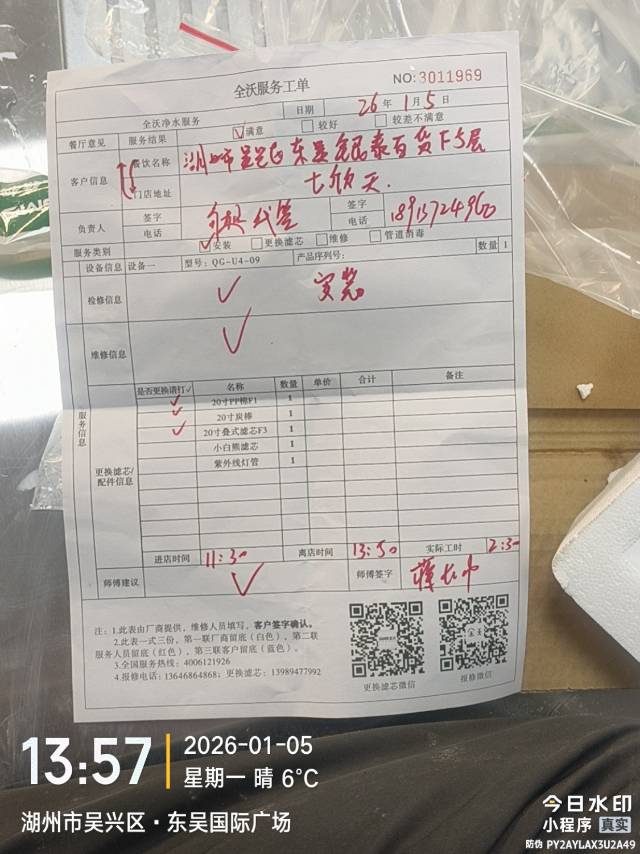 全沃服务工单
NO:3011969
全沃净水服务 日期 26年 1月 5日
餐厅意见 服务结果 满意 较好 较差不满意
客户信息 餐饮名称 湖州市吴兴区东吴 泰百货下5层
门店地址 七欣天
负责人 签字 代签 签字
电话 电话
服务类别 安装 更换滤芯 维修 管道消毒
设备信息 设备一 型号: QG-U4-09 产品序列号: 数量 1
检修信息 安装
维修信息
服务信息
是否更换请打√ 名称 数量 单价 合计 备注
20寸PP棉F1 1
20寸炭棒 1
20寸叠式滤芯F3 1
小白熊滤芯 1
紫外线灯管 1
更换滤芯/
配件信息
进店时间 11:30 离店时间 13:50 实际工时 2:30
师傅建议 师傅签字
注: 1.此表由厂商提供, 维修人员填写, 客户签字确认。
2.此表一式三份, 第一联厂商留底 (白色), 第二联
服务人员留底 (红色), 第三联客户留底 (蓝色)。
3.全国服务热线: 4006121926
4.报修电话: 13646864868; 更换滤芯: 13989477992
更换滤芯微信 报修微信
13:57
2026-01-05
星期一 晴 6°C
湖州市吴兴区·东吴国际广场
今日水印
小程序 真实
防伪 PY2AYLAX3U2A49